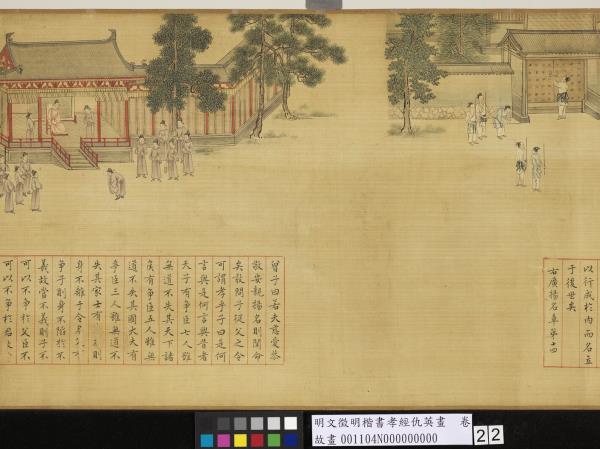 以行成於內而名立
于後世矣
右廣揚名章第十四
曾子曰若夫慈愛恭
敬安親揚名則聞命
矣敢問子從父之令
可謂孝乎子曰是何
言與是何言與昔者
天子有爭臣七人雖
無道不失其天下諸
侯有爭臣五人雖無
道不失其國大夫有
爭臣三人雖無道不
失其家士有則
身不離于令
爭子則身不陷於不
義故當不義則子不
可以不爭於父臣不
可以不爭於君
明文徵明楷書孝經仇英畫 卷
故畫 001104N000000000
22